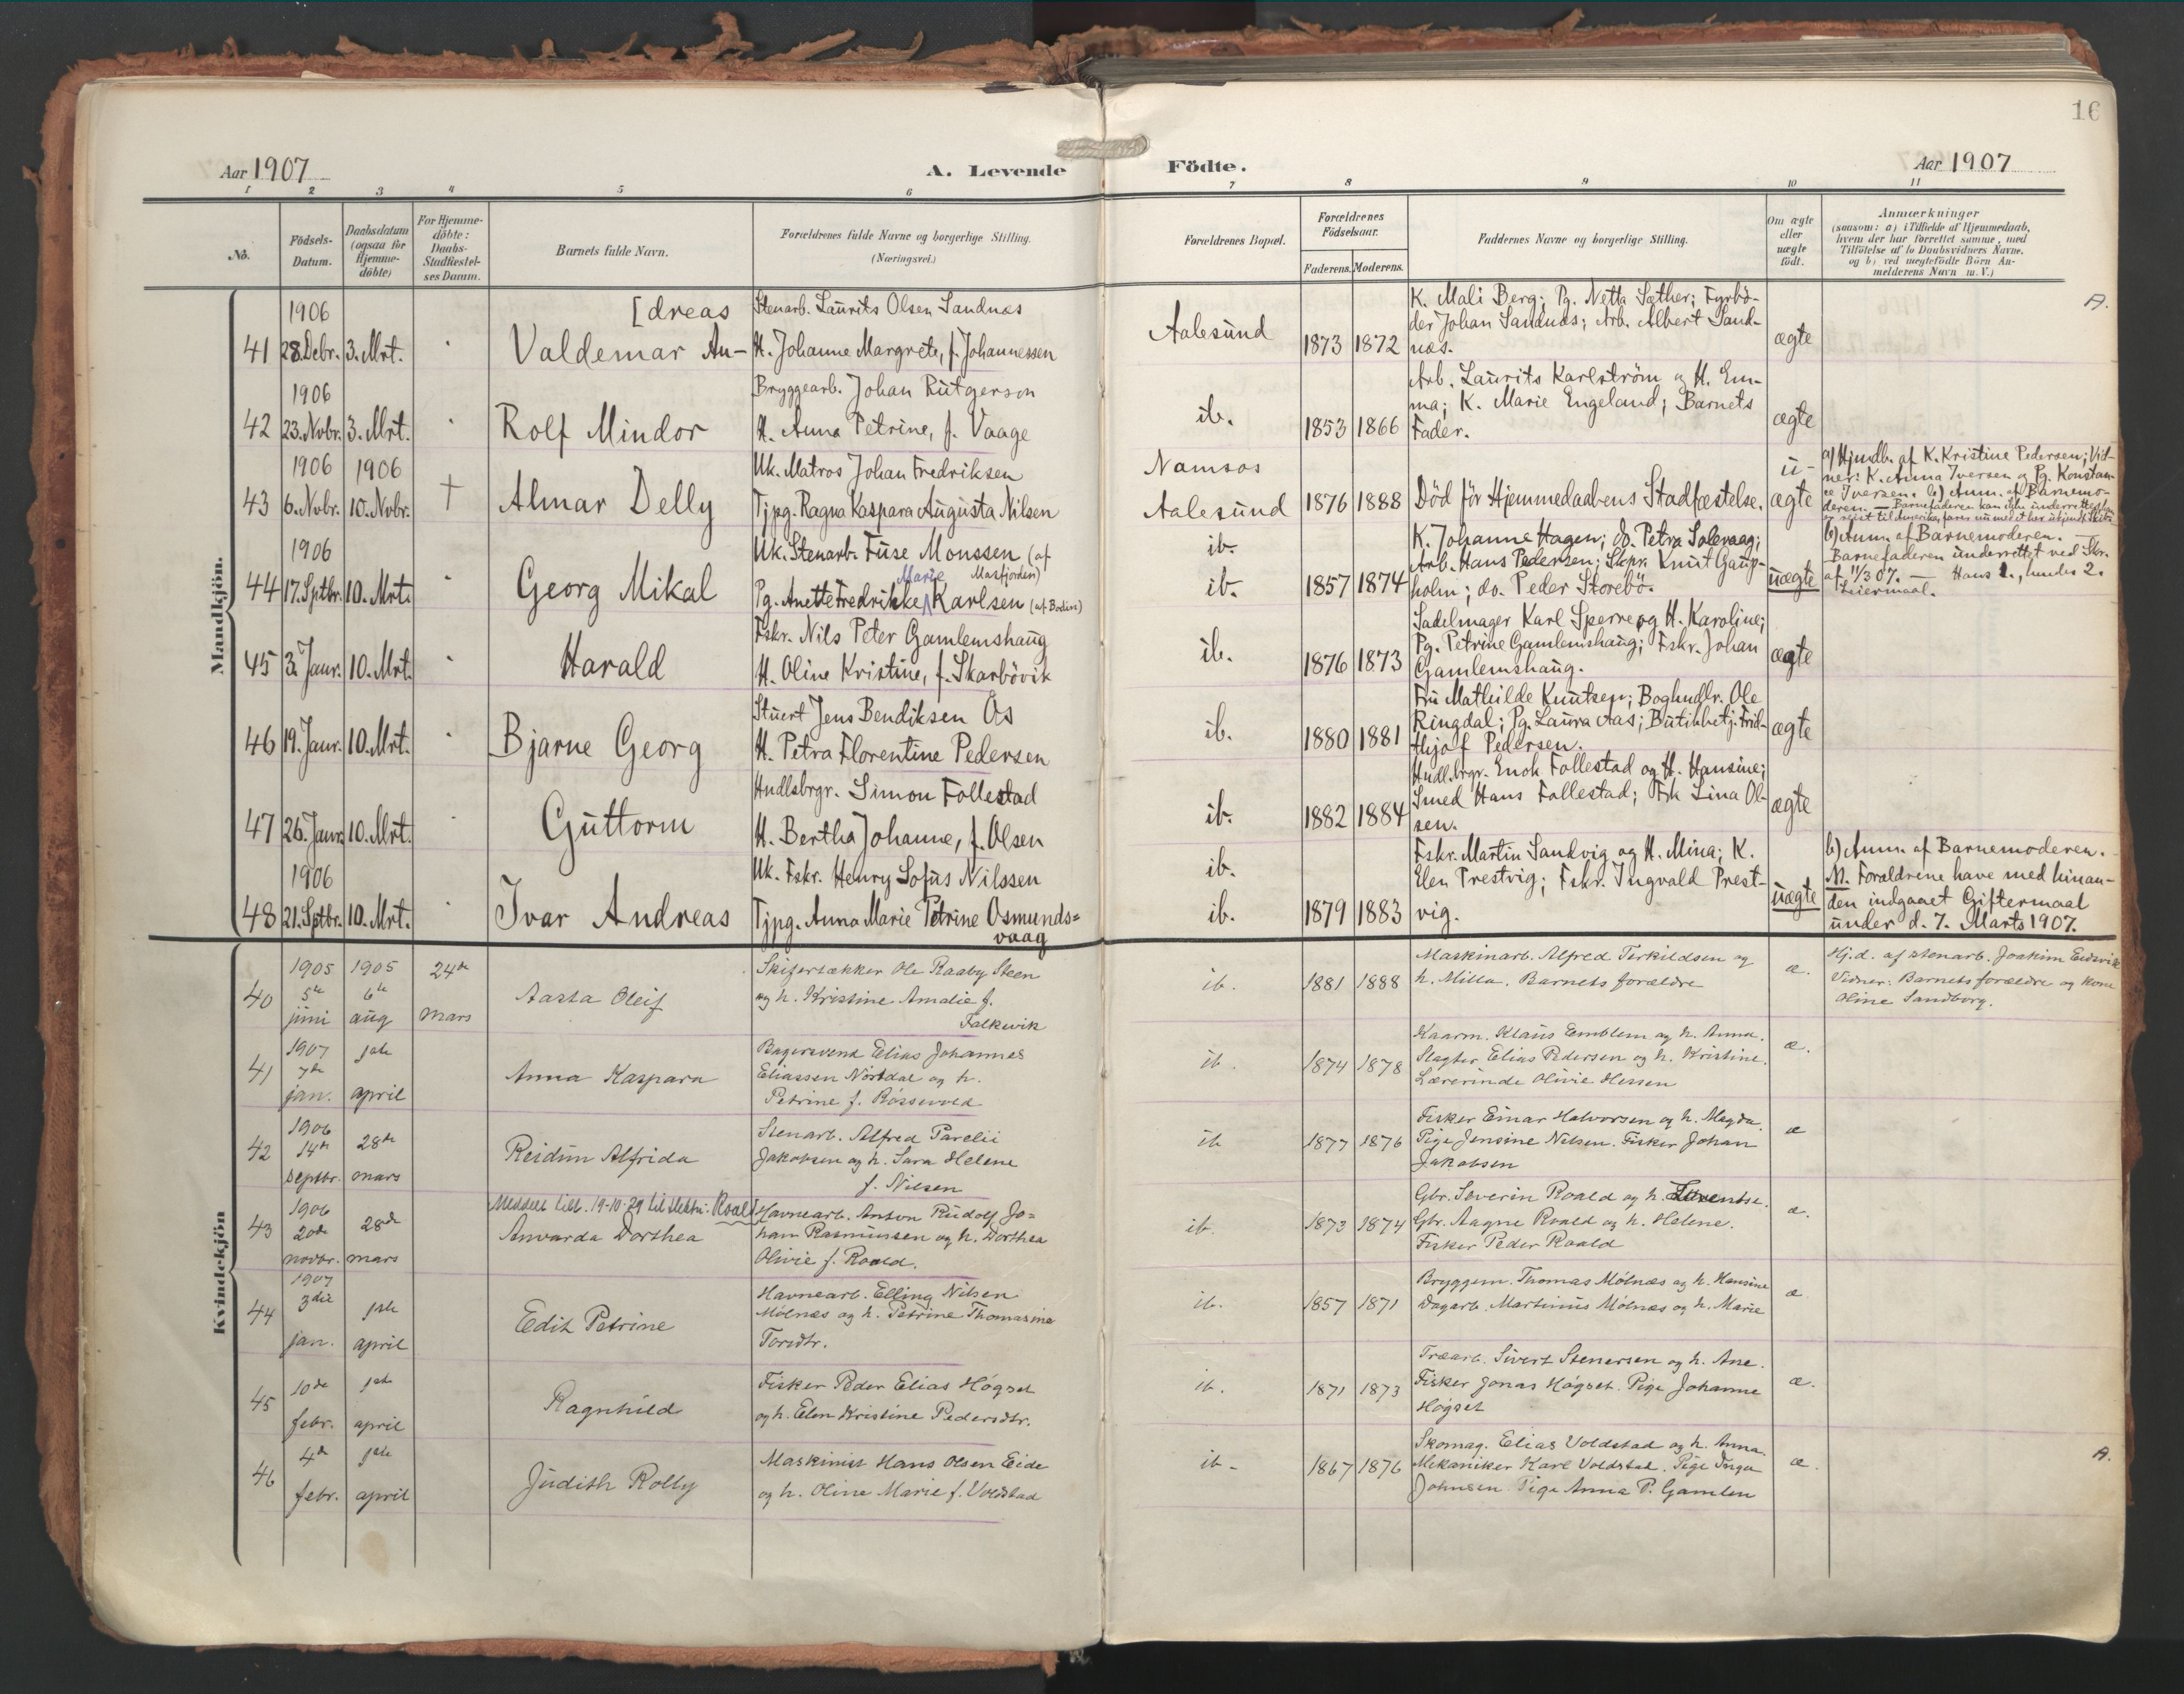 16
Aar 1907 A. Levende Födte. Aar 1907
1 2 3 4 5 6 7 8 9 10 11
No.
Födsels-
Datum.
Daabsdatum
(ogsaa for
Hjemme-
döbte)
For Hjemme-
döbte:
Daabs-
Stadfæstel-
ses Datum.
Barnets fulde Navn.
Forældrenes fulde Navne og borgerlige Stilling.
(Næringsvei.)
Forældrenes Bopæl.
Forældrenes
Födselsaar.
Faderens. Moderens.
Faddernes Navne og borgerlige Stilling.
Om ægte
eller
uægte
födt.
Anmærkninger
(saasom: a) i Tilfælde af Hjemmedaab,
hvem der har forrettet samme, med
Tilföielse af to Daabsvidners Navne,
og b) ved uægtefödte Börn An-
melderens Navn m. V.)
Mandkjön.
41
1906
28. Debr.
3. Mrt.
[dreas
Valdemar An-
Stenarb. Laurits Olsen Sandnæs
H. Johanne Margrete, f. Johannessen
Aalesund
1873 1872
K. Mali Berg; Pg. Netta Sæther; Fyrbö-
der Johan Sandnæs; Arb. Albert Sand-
næs.
ægte
A.
42
1906
23. Novbr.
3. Mrt.
Rolf Mindor
Bryggearb. Johan Rutgerson
H. Anna Petrine, f. Vaage
ib.
1853 1866
Arb. Laurits Karlström og H. Em-
ma; K. Marie Engeland; Barnets
Fader.
ægte
43
1906
6. Nvbr.
1906
10. Nvbr.
†
Almar Delly
Uk. Matros Johan Fredriksen
Tjpg. Ragna Kaspara Augusta Nilsen
Namsos
Aalesund
1876 1888
Död för Hjemmedaabens Stadfæstelse.
u-
ægte
a) Hjmdb. af K. Kristine Pedersen; Vid-
ner: K. Anna Iversen og Pg. Konstan-
ce Iversen. b) Anm. af Barnemo-
deren. — Barnefaderen kan ikke underrettes
44
1906
17. Sptbr.
10. Mrt.
Georg Mikal
Uk. Stenarb. Fuse Monssen (af
Masfjorden)
Marie
Pg. Anette Fredrikke Karlsen (af Bodin)
ib.
ib.
1857 1874
K. Johanne Hagen; do. Petra Solevaag;
Arb. Hans Pedersen; Skpr. Knut Gaup-
holm; do. Peder Storebö.
uægte
b) Anm. af Barnemoderen. —
Barnefaderen underrettet ved Skr.
af 11/3 07. — Hans 1., hendes 2.
Leiermaal.
45
3. Janr.
10. Mrt.
Harald
Fskr. Nils Peter Gamlemshaug
H. Oline Kristine, f. Skarbövik
ib.
1876 1873
Sadelmager Karl Sperre og H. Karoline;
Pg. Petrine Gamlemshaug; Fskr. Johan
Gamlemshaug.
ægte
46
19. Janr.
10. Mrt.
Bjarne Georg
Stuert Jens Bendiksen Os
H. Petra Florentine Pedersen
ib.
1880 1881
Fru Mathilde Knutsen; Boghndlr. Ole
Ringdal; Pg. Laura Aas; Butikbetj. Frid-
thjof Pedersen.
ægte
47
26. Janr.
10. Mrt.
Guttorm
Hndlsbrgr. Simon Follestad
H. Bertha Johanne, f. Olsen
ib.
1882 1884
Hndlsbrgr. Enok Follestad og H. Hansine;
Smed Hans Follestad; Frk Lina Ol-
sen.
ægte
48
1906
21. Sptbr.
10. Mrt.
Ivar Andreas
Uk. Fskr. Henry Sofus Nilssen
Tjpg. Anna Marie Petrine Osmunds=
vaag
ib.
ib.
1879 1883
Fskr. Martin Sandvig og H. Mina; K.
Elen Prestvig; Fskr. Ingvald Prest-
vig.
uægte
b) Anm. af Barnemoderen. -
N. Forældrene have med hinan-
den indgaaet Giftermaal
under d. 7. Marts 1907.
Kvindekjön
40
1905
5te
juni
1905
6te
aug
24de
mars
Aasta Oleif
Skifertækker Ole Raaby Steen
og h. Kristine Amalie f.
Falkevik
ib.
1881 1888
Maskinarb. Alfred Terkildsen og
h. Milla. Barnets forældre
æ.
Hj.d. af stenarb. Joakim
Vidner: Barnets forældre og kone
Oline Sandborg.
41
1907
7de
jan.
1ste
april
Anna Kaspara
Bagersvend Elias Johannes
Eliassen Nørdal og h.
Petrine f. Røssevold
ib.
1874 1878
Kaarm. Klaus Emblem og h. Anna.
Slagter Elias Pedersen og h. Kristine.
Lærerinde Olivie Hessen
æ.
42
1906
14de
Septbr.
28de
mars
Reidun Alfrida
Stenarb. Alfred Parelii
Jakobsen og h. Sara Helene
f. Nilsen
ib
1877 1876
Fisker Einar Halvorsen og h. Magda.
Pige Jensine Nilsen. Fisker Johan
Jakobsen
æ
43
1906
20de
novbr.
28de
mars
Meddelt 19-10-29 til slektsn: Roald
Anvarda Dorthea
Havnearb. Anton Rudolf Jo=
han Rasmussen og h. Dorthea
Olivie f. Roald.
ib.
1873 1874
Gbr. Severin Roald og h.
Gbr. Aagne Roald og h. Helene.
Fisker Peder Roald
æ.
44
1907
3die
jan.
1ste
april
Edit Petrine
Havnearb. Elling Nilsen
Mölnæs og h. Petrine Thomasine
Torsdtr.
ib.
1857 1871
Bryggem. Thomas Mölnæs og h. Hansine
Dagarb. Martinus Mölnæs og h. Marie
æ.
45
10de
febr.
1ste
april
Ragnhild
Fisker Peder Elias Høgset
og h. Elen Kristine Pedersdtr.
ib.
1871 1873
Træarb. Sivert Stenersen og h. Ane.
Fisker Jonas Høgset. Pige Johanne
Høgset
æ.
46
4de
febr.
1ste
april
Judith Rolly
Maskinist Hans Olsen Eide
og h. Oline Marie f. Voldstad
ib-
1867 1876
Skomag. Elias Voldstad og h. Anna.
Mekaniker Karl Voldstad. Pige Inga
Johnsen Pige Anna P. Gamlem
æ.
A.